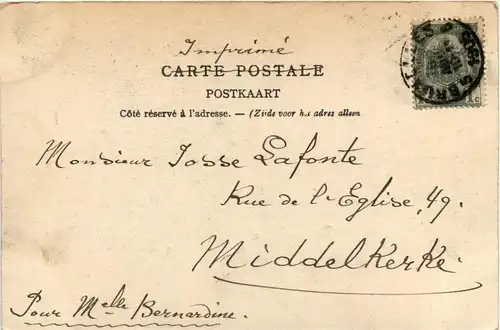 Imprimé
CARTE POSTALE
POSTKAART
Côté réservé à l'adresse. — (Zijde voor het adres alleen
Monsieur Josse Lafonte
Rue de l'Eglise, 49.
Middelkerke
Pour Melle Bernardine.